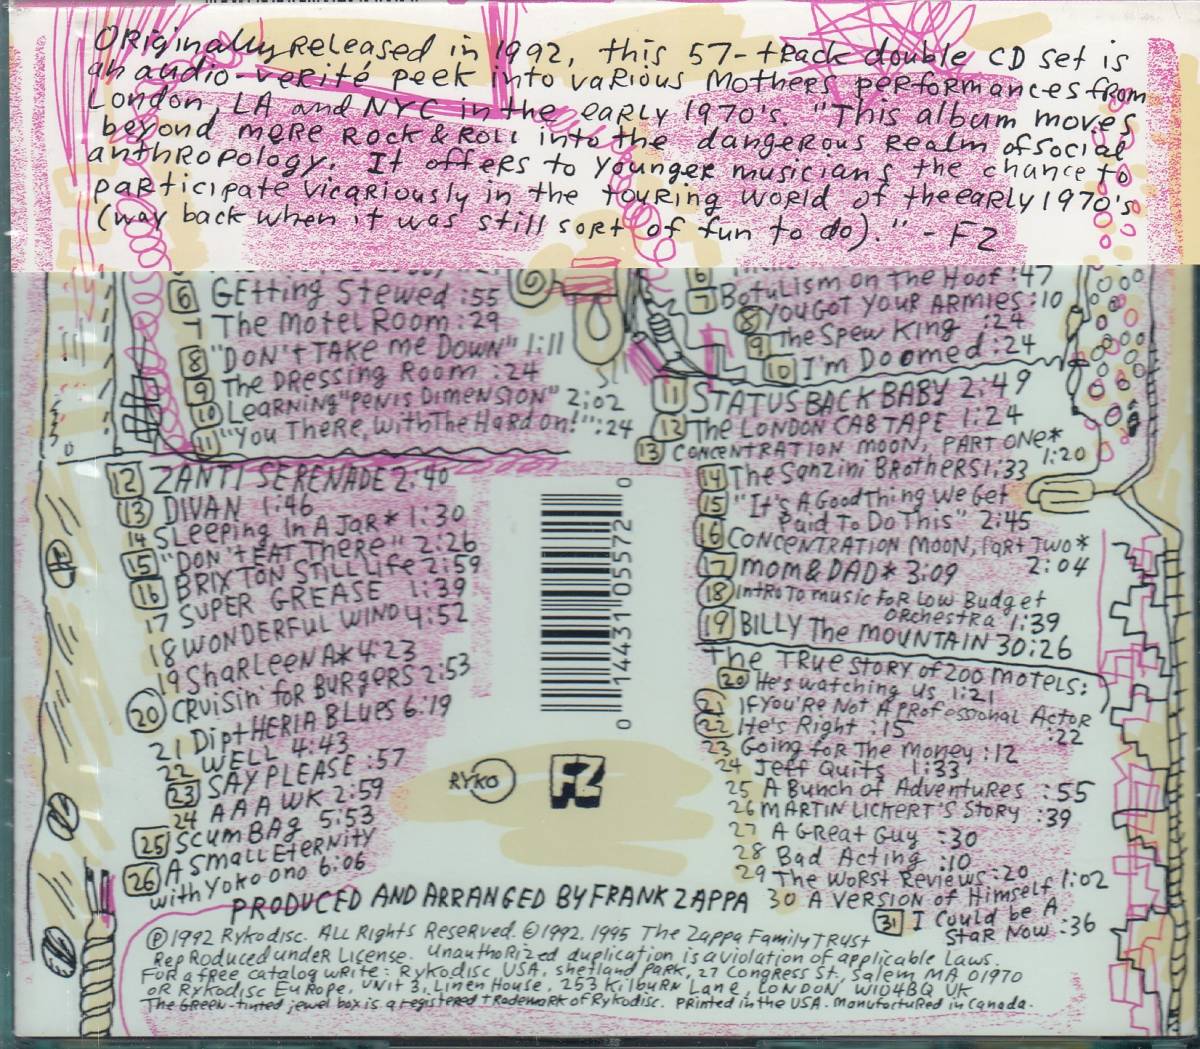 Originally Released in 1992, this 57-track double CD set is
an audio-verité peek into various Mothers performances from
London, LA and NYC in the early 1970's. "This album moves
beyond mere Rock & Roll into the dangerous Realm of social
anthropology. It offers to younger musicians the chance to
participate vicariously in the touring world of the early 1970's
(way back when it was still sort of fun to do)." - FZ
6 Getting Stewed :55
7 The Motel Room :29
8 "DON'T TAKE me DOWN" 1:11
9 The Dressing Room :24
10 Learning "Penis Dimension" 2:02
11 "You There, with The Hard on!" :24
12 ZANTI SERENADE 2:40
13 DIVAN 1:46
14 SLeeping In A Jar* 1:30
15 "DON'T EAT There" 2:26
16 BRIXTON STILL Life 2:59
17 SUPER GREASE 1:39
18 WONDERFUL WIND 4:52
19 SharLeenA* 4:23
20 CRUISIN' for BURGERS 2:53
21 DiptHERIA BLUES 6:19
22 WELL 4:43
23 SAY PLEASE :57
24 AAAWK 2:59
25 ScumBAg 5:53
26 A Small Eternity
with Yoko ono 6:06
6
Botulism on the Hoof :47
7 YOU GOT YOUR ARMIES :10
8 The Spew King :24
9 I'm Doomed :24
10
11 STATUS BACK BABY 2:49
12 The LONDON CAB TAPE 1:24
13 CONCENTRATION MOON, PART ONe*
1:20
14 The Sanzini Brothers 1:33
15 "It's A Good Thing We Get
Paid To Do This" 2:45
16 CONCENTRATION MOON, Part Two*
2:04
17 mom & DAD* 3:09
18 Intro To music For Low Budget
Orchestra 1:39
19 BILLY The MOUNTAIN 30:26
The TRue STORY of 200 MOTELS:
20 He's watching Us 1:21
21 If You're Not A Professional Actor
:22
22 He's Right :15
23 Going for The Money :12
24 Jeff Quits 1:33
25 A Bunch of Adventures :55
26 MARTIN LICKERT'S Story :39
27 A Great Guy :30
28 Bad Acting :10
29 The Worst Reviews :20
30 A Version of Himself 1:02
31 I Could be A
Star Now :36
0 14431 05572 0
RYKO
FZ
PRODUCED AND ARRANGED BY FRANK ZAPPA
℗1992 Rykodisc. ALL Rights Reserved. ©1992, 1995 The Zappa Family Trust
Reproduced under License. Unauthorized duplication is a violation of applicable Laws.
For a free catalog write: Rykodisc USA, Shetland Park, 27 Congress St, Salem MA 01970
or Rykodisc Europe, Unit 3, Linen House, 253 Kilburn Lane, LONDON W104BQ UK
The Green-tinted jewel box is a registered trademark of Rykodisc. Printed in the USA. manufactured in Canada.